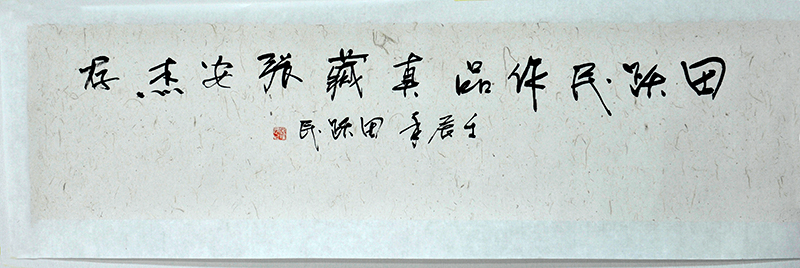 田跃民作品真藏张安杰存
壬辰年田跃民